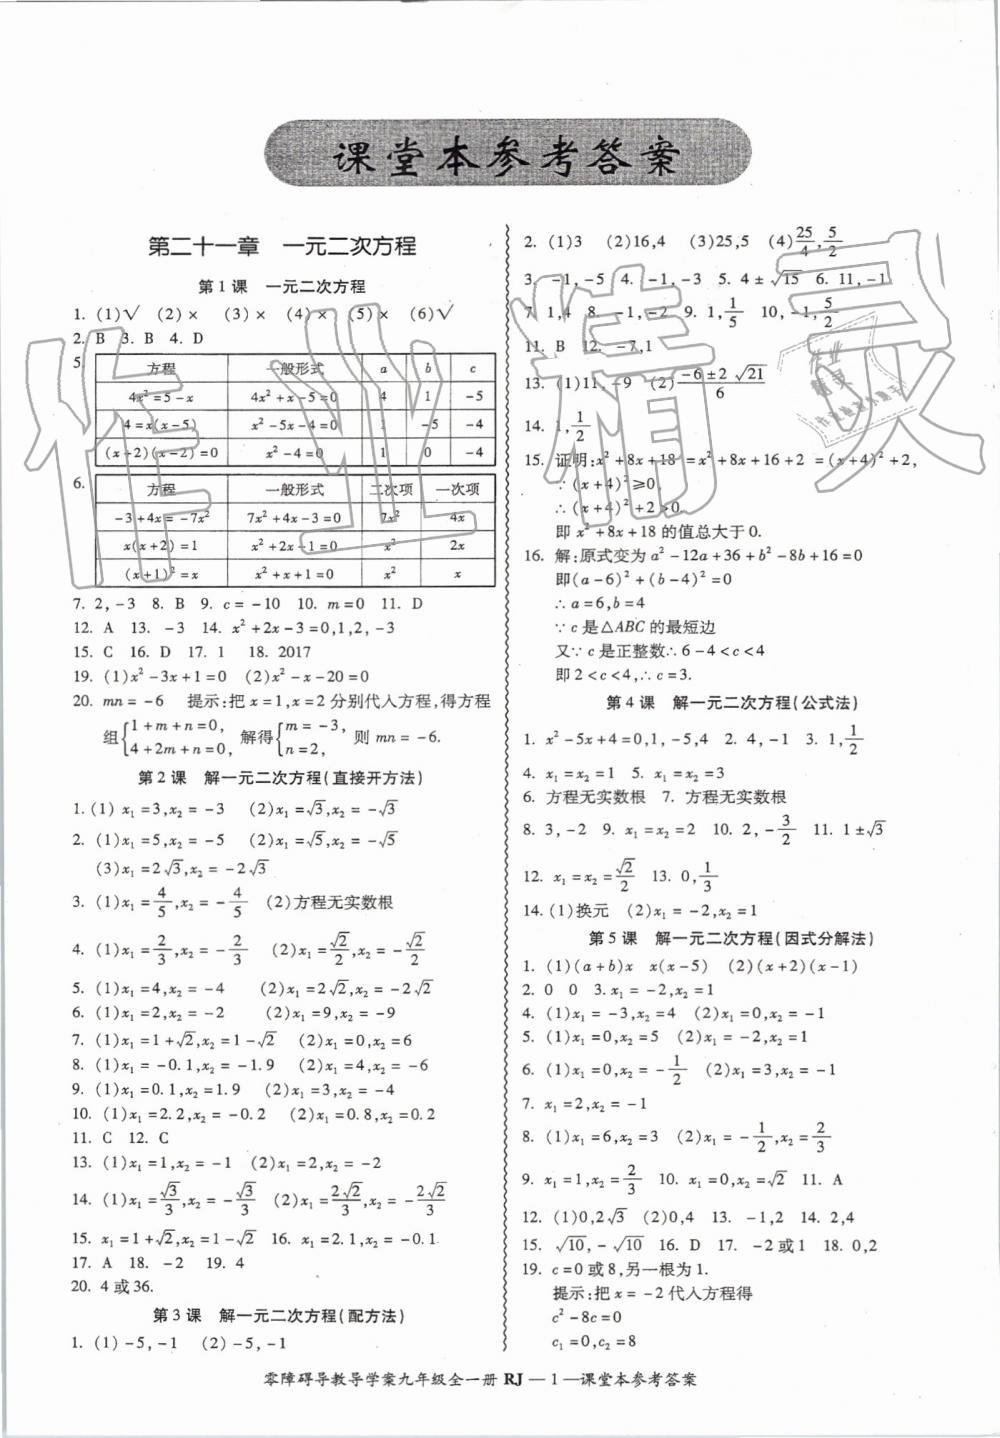 课堂本参考答案
第二十一章 一元二次方程
第1课 一元二次方程
1. (1)√ (2)× (3)× (4)× (5)× (6)√
2. B 3. B 4. D
5.
方程 一般形式 a b c
4x²=5-x 4x²+x-5=0 4 1 -5
4=x(x-5) x²-5x-4=0 1 -5 -4
(x+2)(x-2)=0 x²-4=0 1 0 -4
6.
方程 一般形式 二次项 一次项
-3+4x=-7x² 7x²+4x-3=0 7x² 4x
x(x+2)=1 x²+2x-1=0 x² 2x
(x+1)²=x x²+x+1=0 x² x
7. 2,-3 8. B 9. c=-10 10. m=0 11. D
12. A 13. -3 14. x²+2x-3=0,1,2,-3
15. C 16. D 17. 1 18. 2017
19. (1)x²-3x+1=0 (2)x²-x-20=0
20. mn=-6 提示:把x=1,x=2分别代入方程,得方程
组{1+m+n=0, 4+2m+n=0, 解得{m=-3, n=2, 则mn=-6.
第2课 解一元二次方程(直接开方法)
1. (1) x₁=3,x₂=-3 (2)x₁=√3,x₂=-√3
2. (1)x₁=5,x₂=-5 (2)x₁=√5,x₂=-√5
(3)x₁=2√3,x₂=-2√3
3. (1)x₁=4/5,x₂=-4/5 (2)方程无实数根
4. (1)x₁=2/3,x₂=-2/3 (2)x₁=√2/2,x₂=-√2/2
5. (1)x₁=4,x₂=-4 (2)x₁=2√2,x₂=-2√2
6. (1)x₁=2,x₂=-2 (2)x₁=9,x₂=-9
7. (1)x₁=1+√2,x₂=1-√2 (2)x₁=0,x₂=6
8. (1)x₁=-0.1,x₂=-1.9 (2)x₁=4,x₂=-6
9. (1)x₁=0.1,x₂=1.9 (2)x₁=3,x₂=-4
10. (1)x₁=2.2,x₂=-0.2 (2)x₁=0.8,x₂=0.2
11. C 12. C
13. (1)x₁=1,x₂=-1 (2)x₁=2,x₂=-2
14. (1)x₁=√3/3,x₂=-√3/3 (2)x₁=2√2/3,x₂=-2√2/3
15. x₁=1+√2,x₂=1-√2 16. x₁=2.1,x₂=-0.1
17. A 18. -2 19. 4
20. 4或36.
第3课 解一元二次方程(配方法)
1. (1)-5,-1 (2)-5,-1
2. (1)3 (2)16,4 (3)25,5 (4)25/4,5/2
3. -1,-5 4. -1,-3 5. 4±√15 6. 11,-1
7. 1,4 8. -1,-2 9. 1,1/5 10. -1,5/2
11. B 12. -7,1
13. (1)11,-9 (2)(-6±2√21)/6
14. 1,1/2
15. 证明:x²+8x+18=x²+8x+16+2=(x+4)²+2,
∵(x+4)²≥0,
∴(x+4)²+2>0.
即x²+8x+18的值总大于0.
16. 解:原式变为a²-12a+36+b²-8b+16=0
即(a-6)²+(b-4)²=0
∴a=6,b=4
∵c是△ABC的最短边
又∵c是正整数∴6-4<c<4
即2<c<4,∴c=3.
第4课 解一元二次方程(公式法)
1. x²-5x+4=0,1,-5,4 2. 4,-1 3. 1,1/2
4. x₁=x₂=1 5. x₁=x₂=3
6. 方程无实数根 7. 方程无实数根
8. 3,-2 9. x₁=x₂=2 10. 2,-3/2 11. 1±√3
12. x₁=x₂=√2/2 13. 0,1/3
14. (1)换元 (2)x₁=-2,x₂=1
第5课 解一元二次方程(因式分解法)
1. (1)(a+b)x x(x-5) (2)(x+2)(x-1)
2. 0 0 3. x₁=-2,x₂=1
4. (1)x₁=-3,x₂=4 (2)x₁=0,x₂=-1
5. (1)x₁=0,x₂=5 (2)x₁=-2,x₂=1
6. (1)x₁=0,x₂=-1/2 (2)x₁=3,x₂=-1
7. x₁=2,x₂=-1
8. (1)x₁=6,x₂=3 (2)x₁=-1/2,x₂=2/3
9. x₁=1,x₂=2/3 10. x₁=0,x₂=√2 11. A
12. (1)0,2√3 (2)0,4 13. -1,2 14. 2,4
15. √10,-√10 16. D 17. -2或1 18. 0,2
19. c=0或8,另一根为1.
提示:把x=-2代入方程得
c²-8c=0
c₁=0,c₂=8
零障碍导教导学案九年级全一册RJ—1—课堂本参考答案
作业精灵